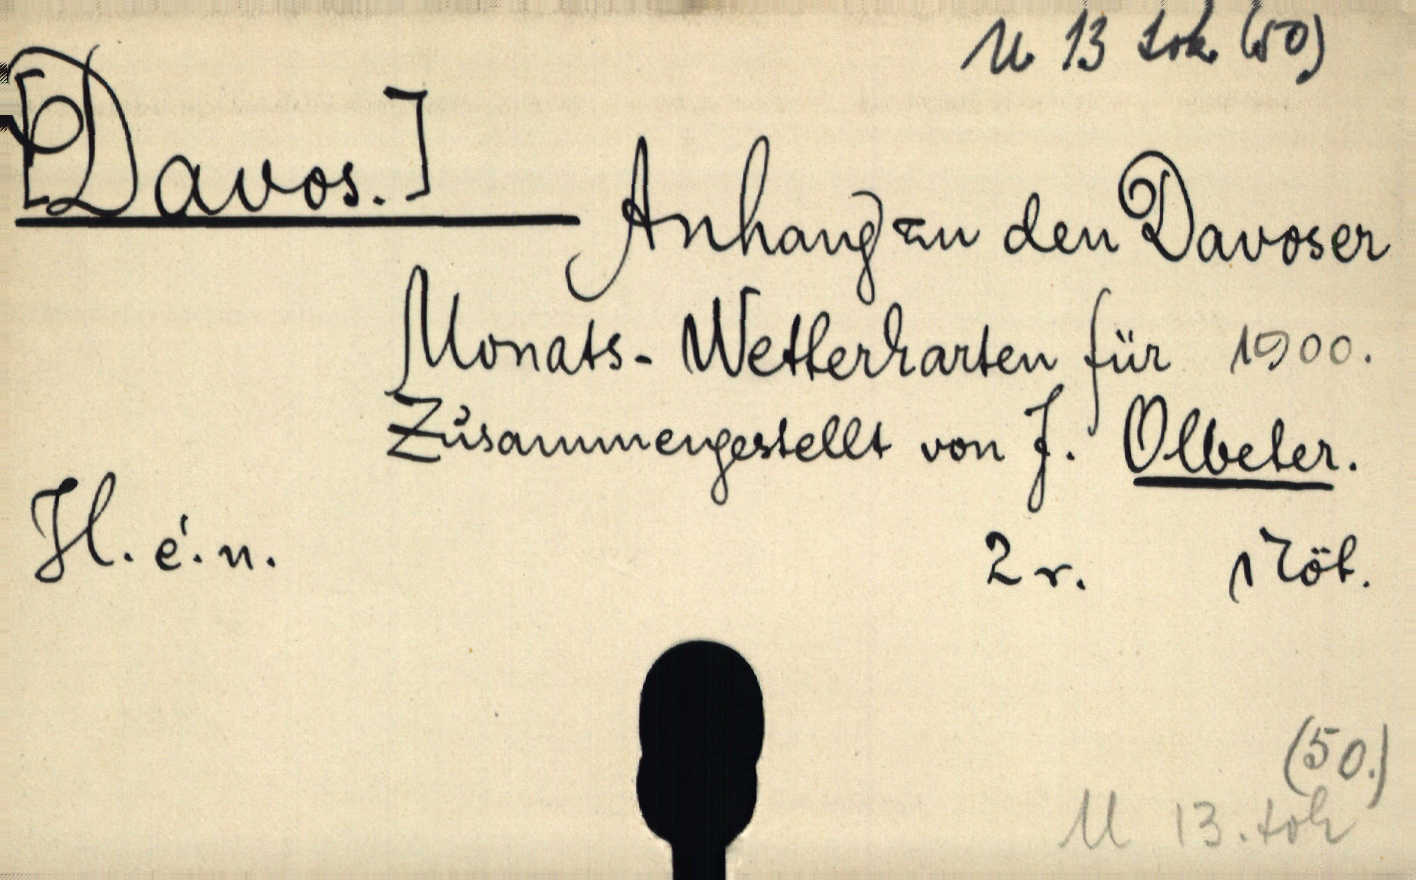 M 13 tok (50)
[Davos.]
Anhang zu den Davoser
Monats-Wetterkarten für 1900.
Zusammengestellt von J. Olbeter.
H. é. n. 2 r. Nöt.
(50.)
M 13. tok